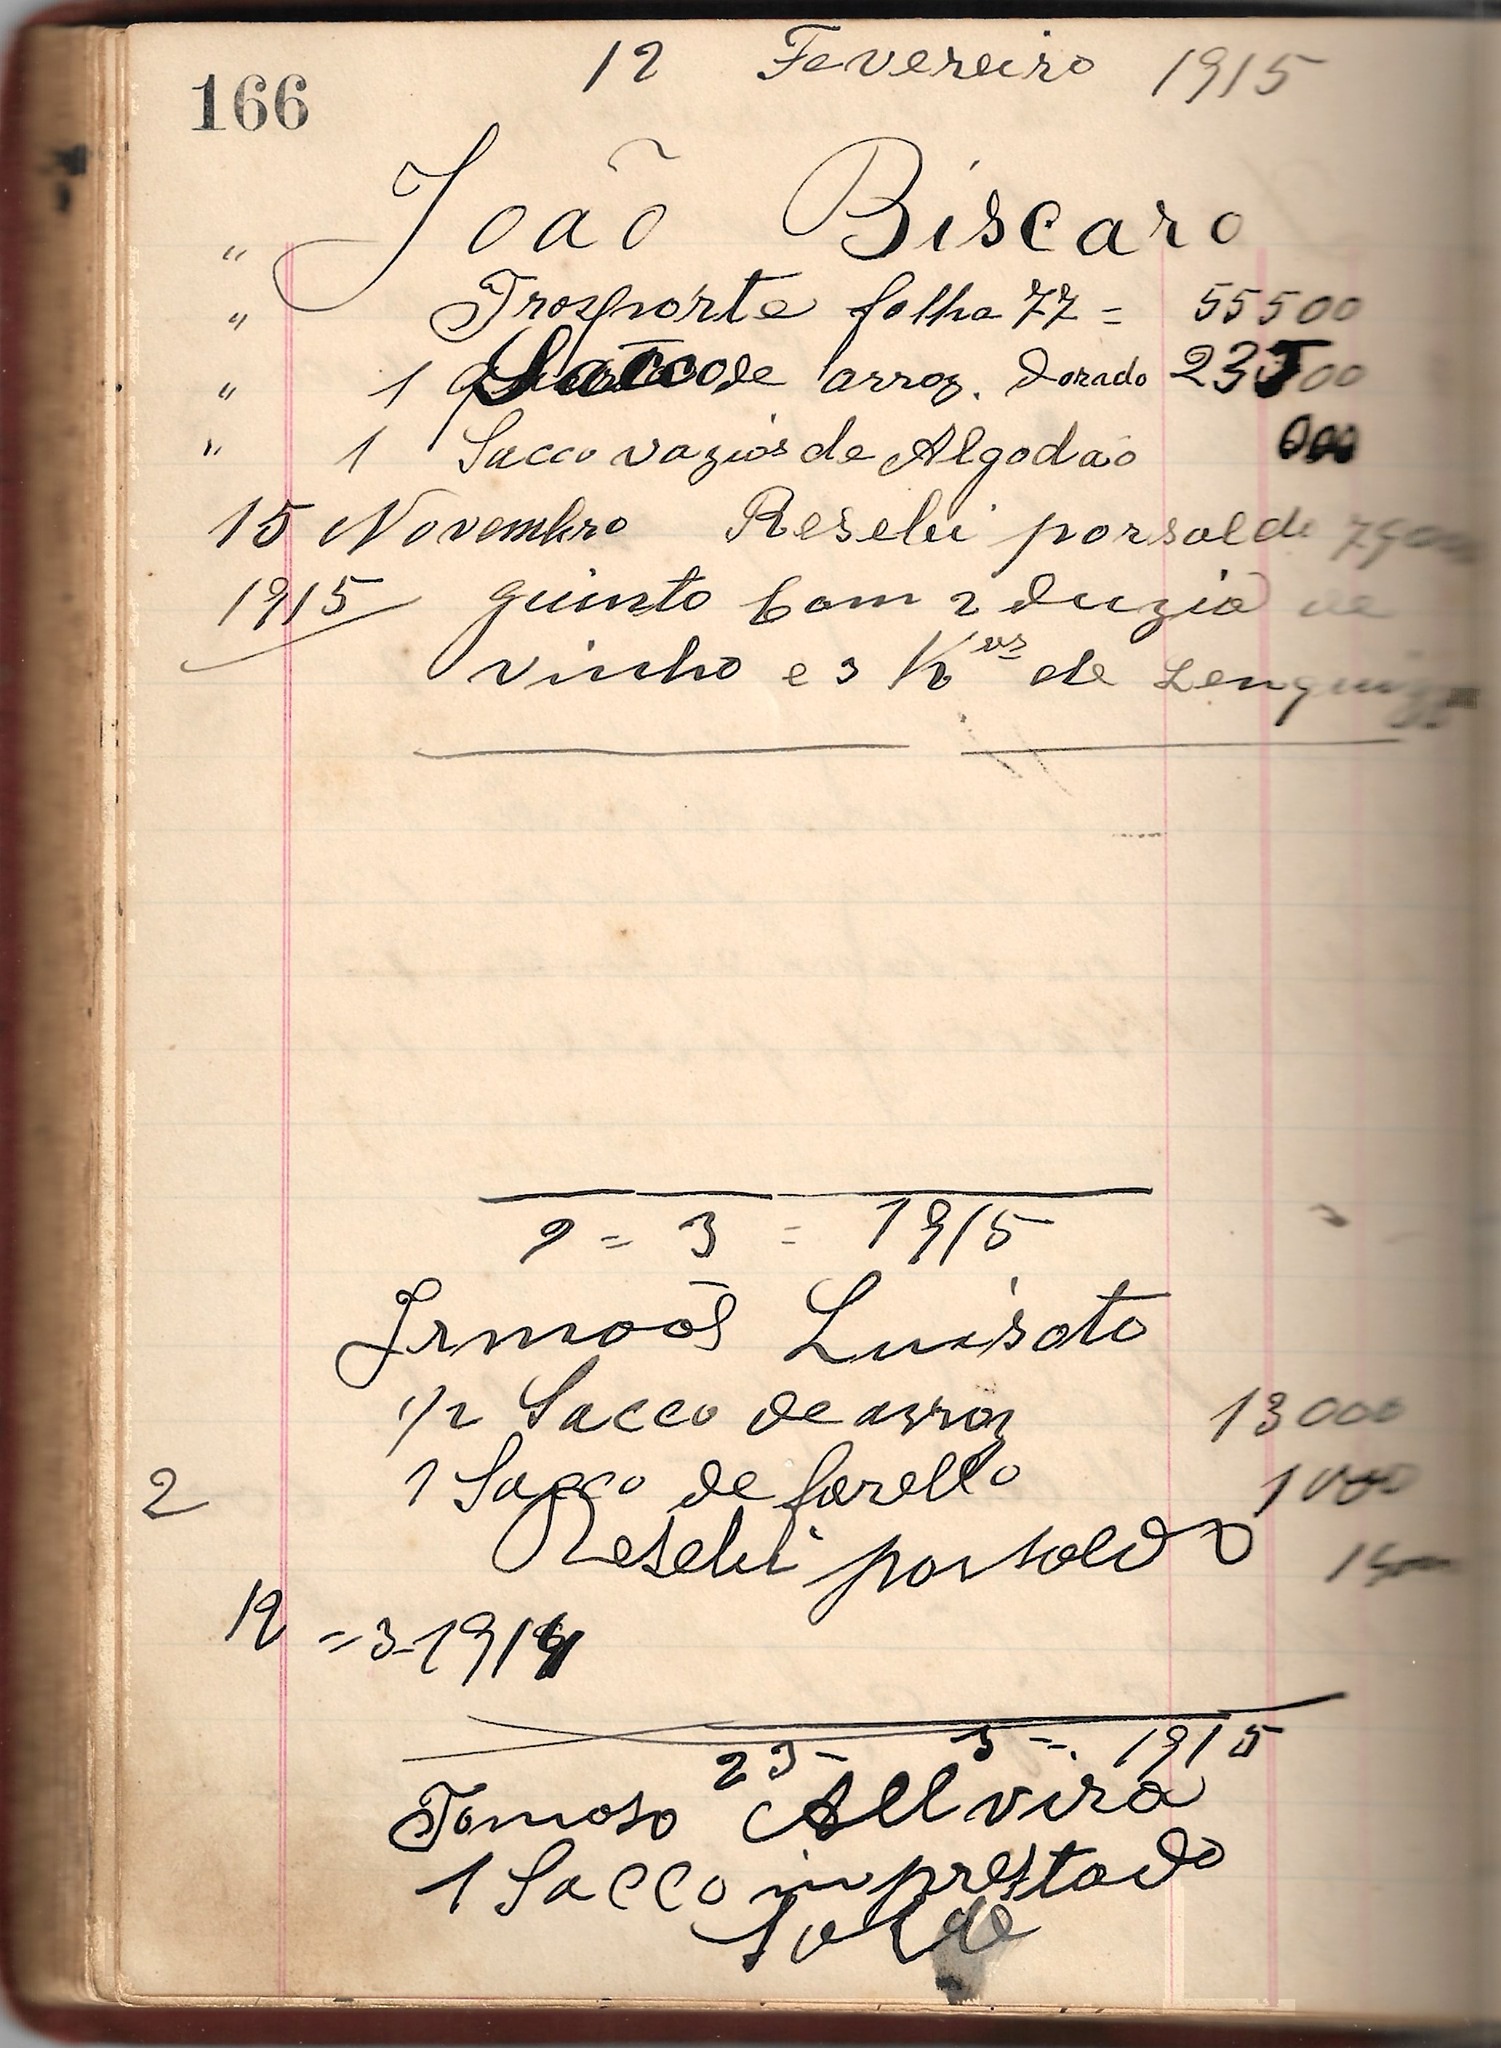 166
12 Fevereiro 1915
" João Biscaro
" Trosporte folha 77 = 55500
" 1 Sacco de arroz. Dorado 23500
" 1 Sacco vazios de Algodão 000
15 Novembro Reselei porsaldo 79000
1915 quinto Com 2 duzia de
vinho e 3 Kos de Lenguiza
2 = 3 = 1915
Irmoõs Luisoto
1/2 Sacco de arroz 13000
2 1 Sacco de forello 1000
Reselei porsoldo
12 = 3-1914
23 - 3 =. 1915
Tomoso Allvira
1 Sacco imprestado
Solde